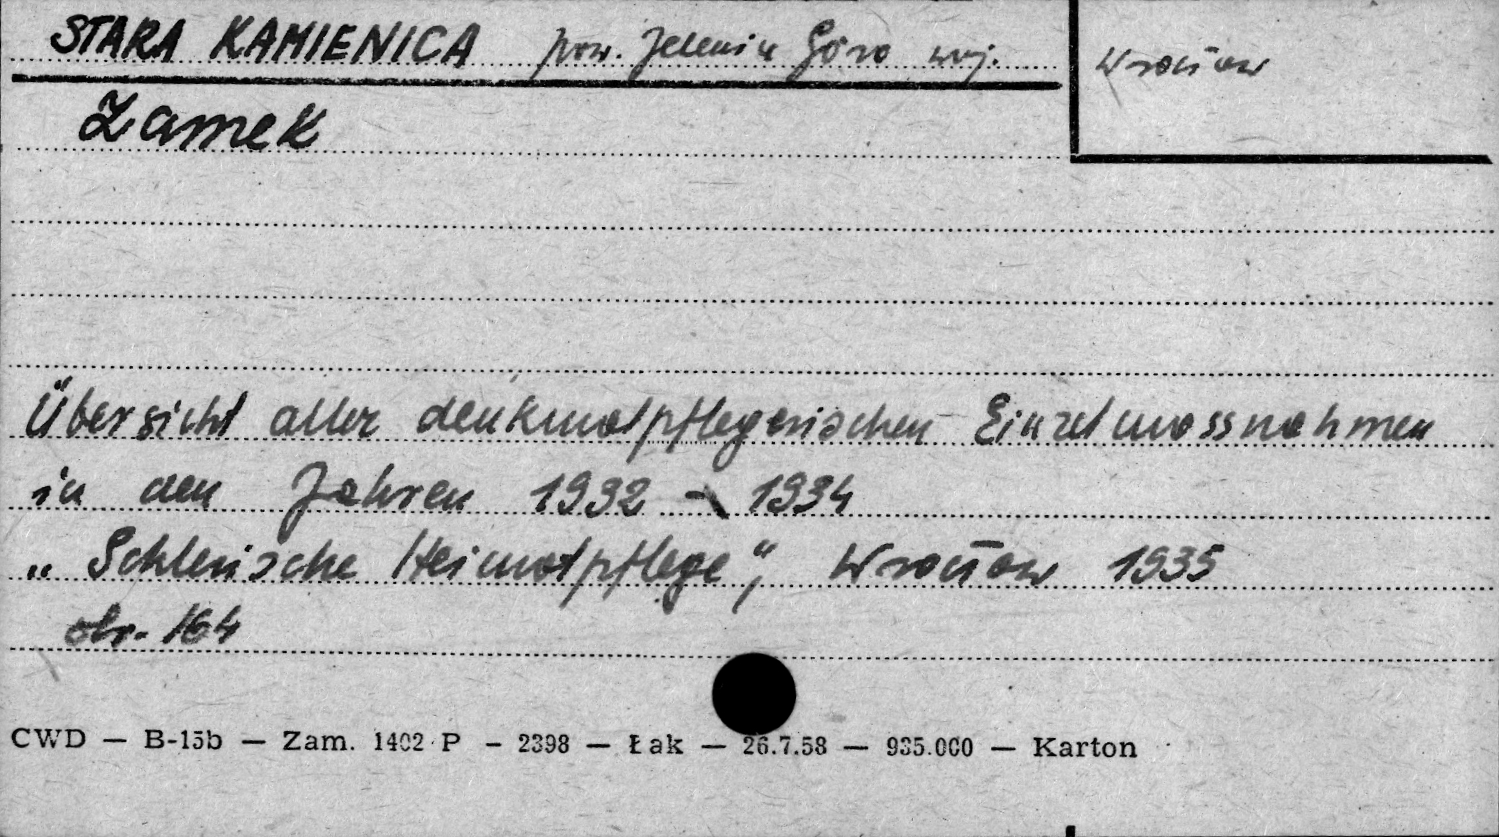 STARA KAMIENICA pow. Jelenia Góra woj. Wrocław
Zamek
Übersicht aller denkmalpflegerischen Einzelmassnahmen
in den Jahren 1932 - 1934
„Schlesische Heimatpflege", Wrocław 1935
str. 164
CWD — B-15b — Zam. 1402 P - 2398 — Łak — 26.7.58 — 935.000 — Karton